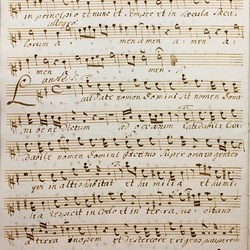 in principio et nunc et semper et in sæcula sæcu
allegro
lorum a men amen a men a
men a men
Laudate nomen Domini
sit nomen Domi
ni benedictum ad occasum laudabile lau
dabile nomen Domini excelsus super omnes gentes
qui in altis habitat et humilia et humi
lia respicit in cælo et in terra, sus citans
a terra inopem et de stercore erigens pauperem